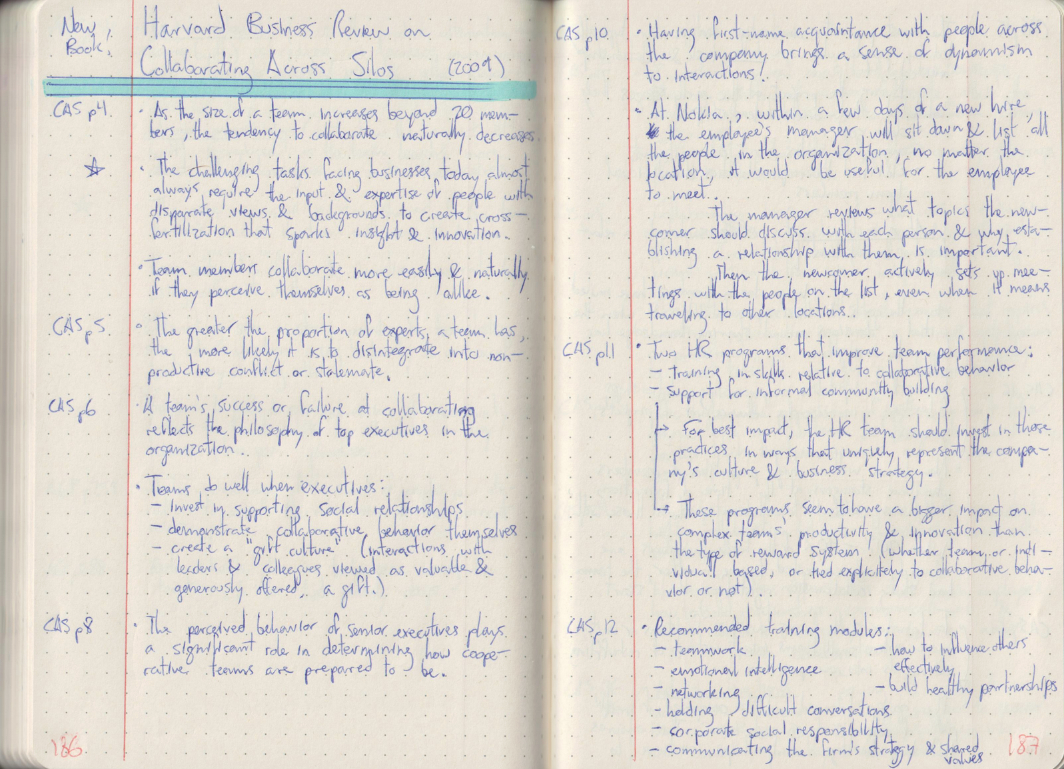 New Book:
Harvard Business Review on
Collaborating Across Silos (2009)
CAS p4
• As the size of a team increases beyond 20 mem-
bers, the tendency to collaborate naturally decreases.
☆
• The challenging tasks facing businesses today almost
always require the input & expertise of people with
disparate views & backgrounds to create cross-
fertilization that sparks insight & innovation.
• Team members collaborate more easily & naturally
if they perceive themselves as being alike.
CAS p5
• The greater the proportion of experts a team has,
the more likely it is to disintegrate into non-
productive conflict or stalemate.
CAS p6
A team's success or failure at collaborating
reflects the philosophy of top executives in the
organization.
• Teams do well when executives:
– invest in supporting social relationships
– demonstrate collaborative behavior themselves
– create a "gift culture" (interactions with
leaders & colleagues viewed as valuable &
generously offered, a gift.)
CAS p8
• The perceived behavior of senior executives plays
a significant role in determining how coope-
rative teams are prepared to be.
186
CAS p10
• Having first-name acquaintance with people across
the company brings a sense of dynamism
to interactions.
• At Nokia, within a few days of a new hire,
the employee's manager will sit down & list all
the people in the organization, no matter the
location, it would be useful for the employee
to meet.
The manager reviews what topics the new-
comer should discuss with each person & why esta-
blishing a relationship with them is important.
Then the newcomer actively sets up mee-
tings with the people on the list, even when it means
traveling to other locations.
CAS p11
• Two HR programs that improve team performance:
– training in skills relative to collaborative behavior
– support for informal community building
→ For best impact, the HR team should invest in those
practices in ways that uniquely represent the compa-
ny's culture & business strategy.
→ These programs seem to have a bigger impact on
complex team's productivity & innovation than
the type of reward system (whether team or indi-
vidual based, or tied explicitely to collaborative beha-
vior or not).
CAS p12
• Recommended training modules:
– teamwork
– emotional intelligence
– networking
– holding difficult conversations
– corporate social responsibility
– communicating the firm's strategy & shared
values
– how to influence others
effectively
– build healthy partnerships
187